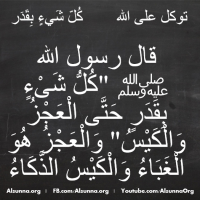 توكل على الله    كُلّ شَيءٍ بِقَدَر
قال رسول الله
ﷺ "كُلُّ شَىْءٍ
بِقَدَرٍ حَتَّى الْعَجْزُ
وَالْكَيْسُ" وَالْعَجْزُ هُوَ
الْغَبَاءُ وَالْكَيْسُ الذَّكَاءُ
Alsunna.org | FB.com/Alsunna.Org | Youtube.com/AlsunnaOrg